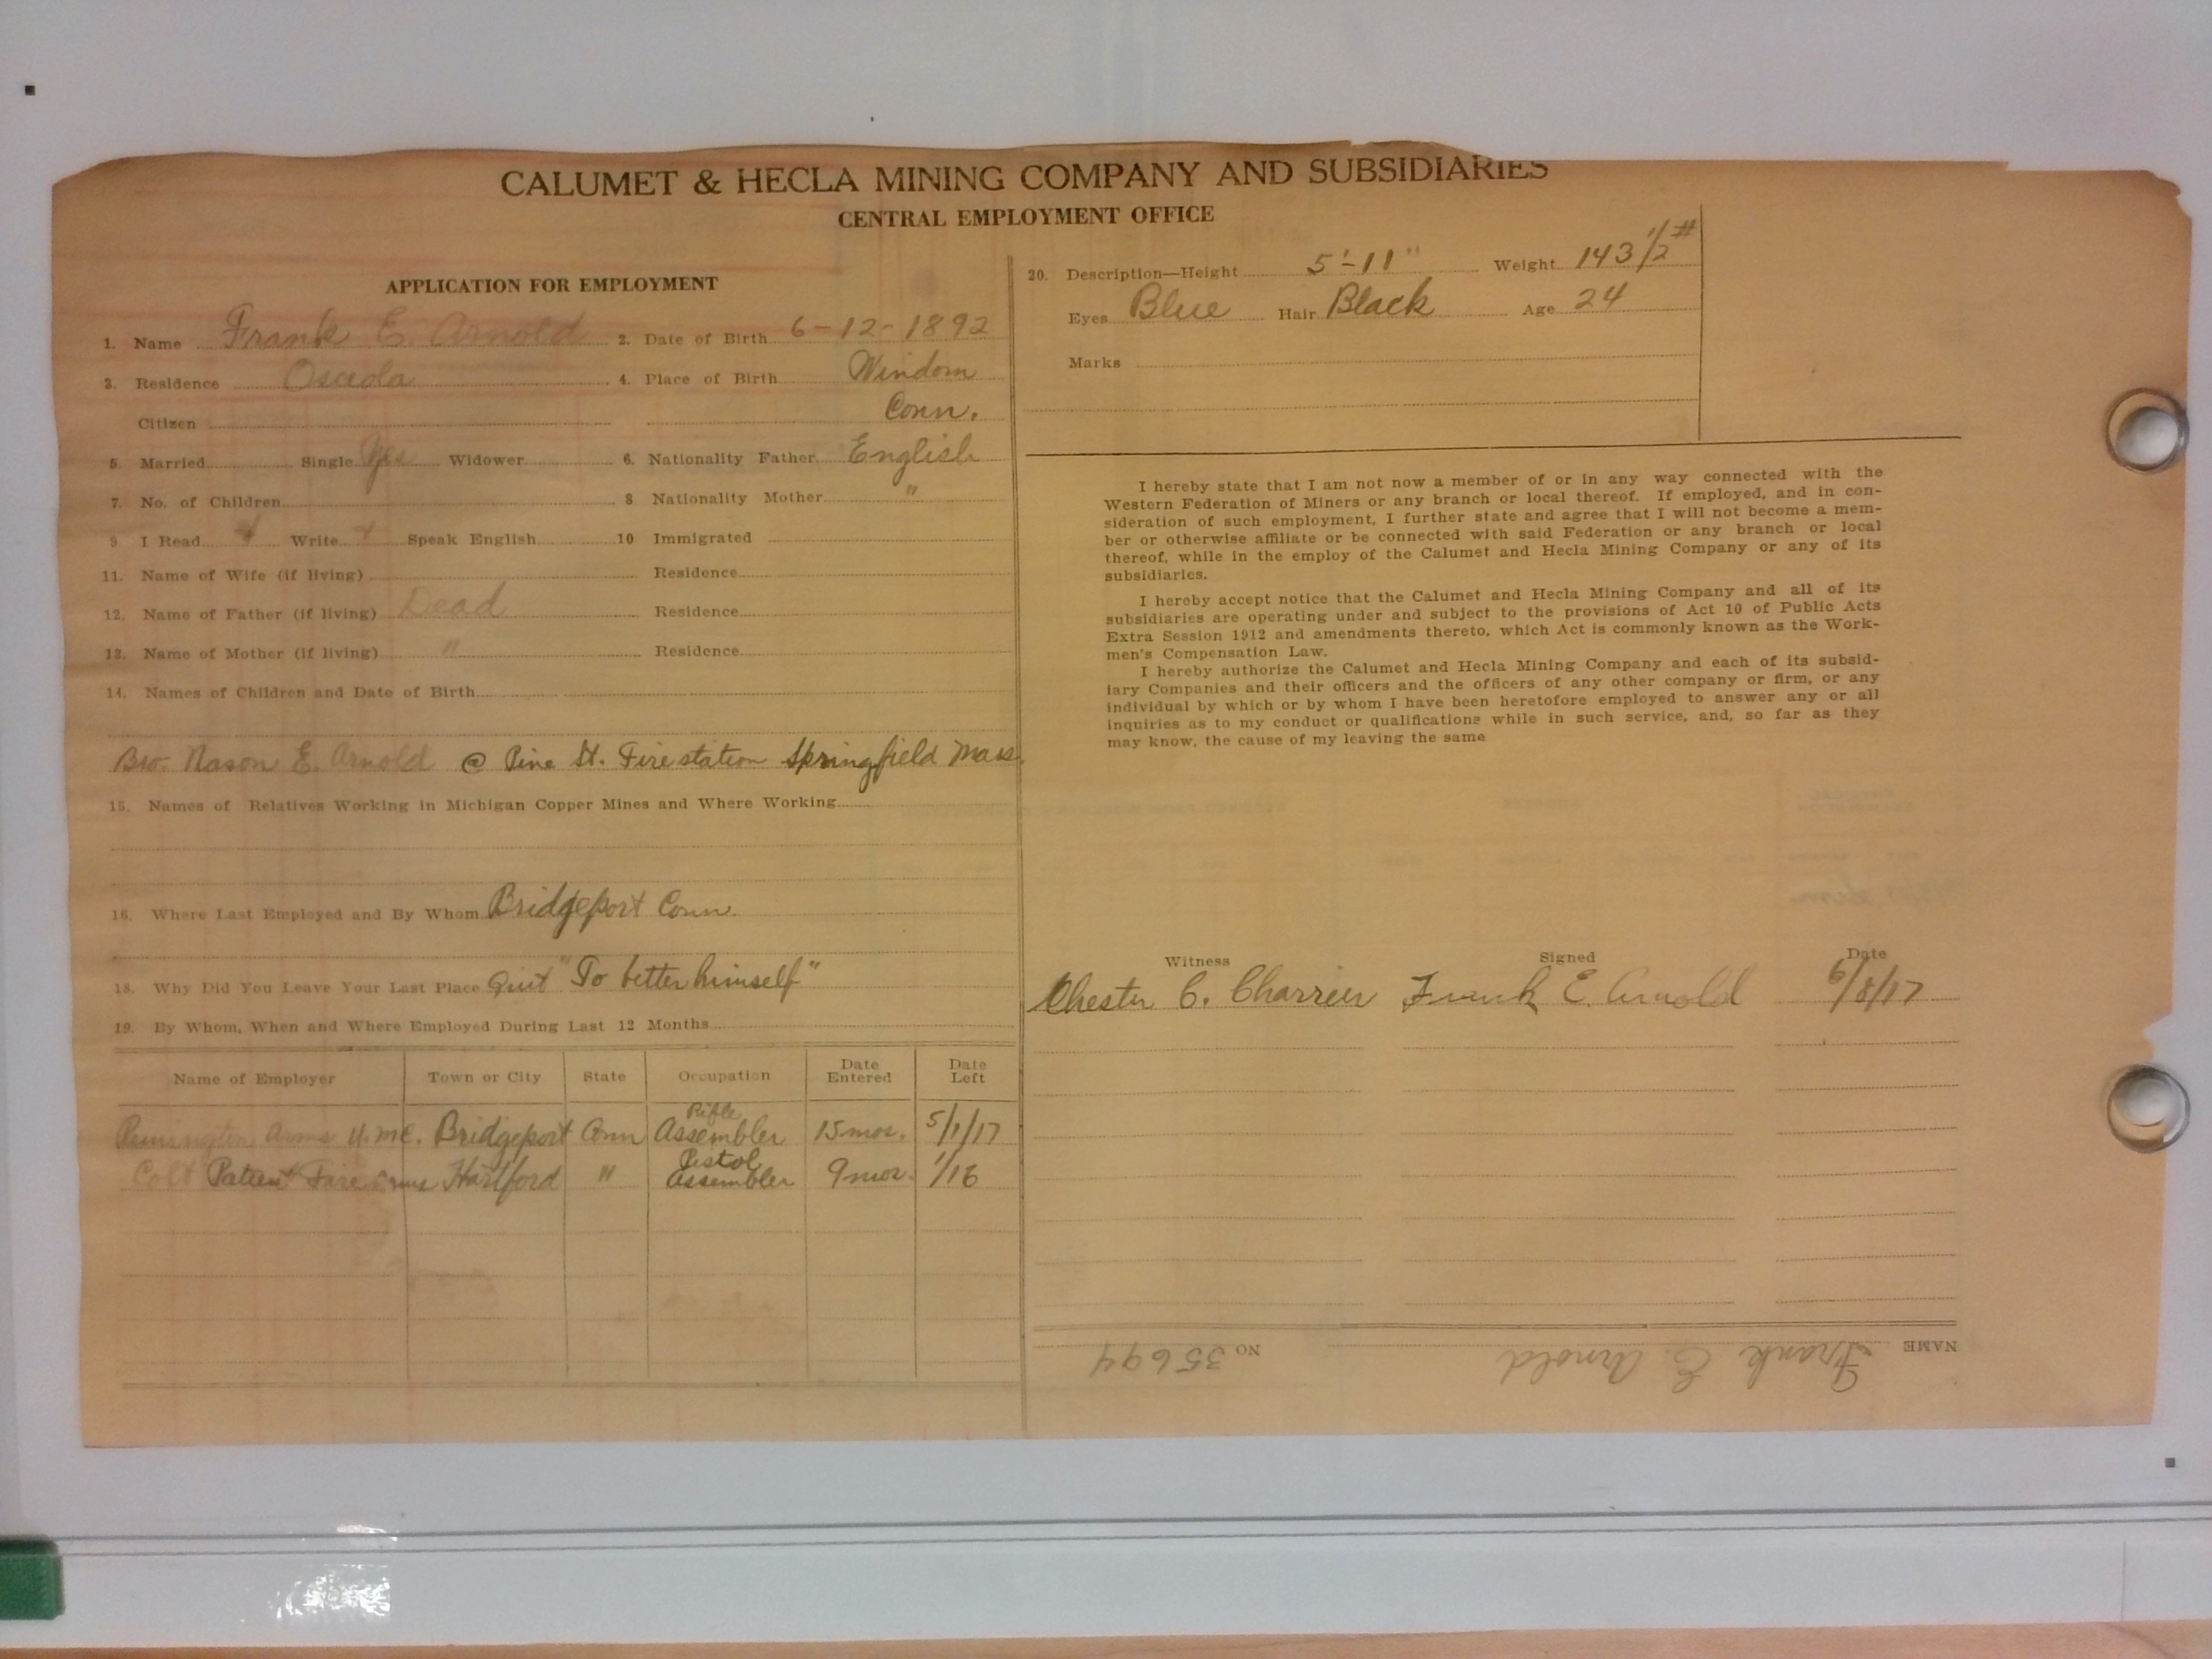 CALUMET & HECLA MINING COMPANY AND SUBSIDIARIES
CENTRAL EMPLOYMENT OFFICE
APPLICATION FOR EMPLOYMENT
1. Name Frank E. Arnold 2. Date of Birth 6-12-1892
3. Residence Osceola 4. Place of Birth Windom
Citizen Conn.
5. Married Single Yes Widower 6. Nationality Father English
7. No. of Children 8 Nationality Mother "
9 I Read Write Speak English 10 Immigrated
11. Name of Wife (if living) Residence
12. Name of Father (if living) Dead Residence
13. Name of Mother (if living) " Residence
14. Names of Children and Date of Birth
Bro. Nason E. Arnold @ Pine St. Fire station Springfield Mass.
15. Names of Relatives Working in Michigan Copper Mines and Where Working
16. Where Last Employed and By Whom Bridgeport Conn.
18. Why Did You Leave Your Last Place Quit "To better himself"
19. By Whom, When and Where Employed During Last 12 Months
Name of Employer Town or City State Occupation Date Entered Date Left
Remington Arms U.M.C. Bridgeport Conn Rifle Assembler 15 mos. 5/1/17
Colt Patient Fire Arms Hartford " Pistol Assembler 9 mos. 1/16
20. Description—Height 5'-11" Weight 143 1/2 #
Eyes Blue Hair Black Age 24
Marks
I hereby state that I am not now a member of or in any way connected with the
Western Federation of Miners or any branch or local thereof. If employed, and in con-
sideration of such employment, I further state and agree that I will not become a mem-
ber or otherwise affiliate or be connected with said Federation or any branch or local
thereof, while in the employ of the Calumet and Hecla Mining Company or any of its
subsidiaries.
I hereby accept notice that the Calumet and Hecla Mining Company and all of its
subsidiaries are operating under and subject to the provisions of Act 10 of Public Acts
Extra Session 1912 and amendments thereto, which Act is commonly known as the Work-
men's Compensation Law.
I hereby authorize the Calumet and Hecla Mining Company and each of its subsid-
iary Companies and their officers and the officers of any other company or firm, or any
individual by which or by whom I have been heretofore employed to answer any or all
inquiries as to my conduct or qualifications while in such service, and, so far as they
may know, the cause of my leaving the same
Witness Signed Date
Chester C. Charrier Frank E. Arnold 6/8/17
NAME Frank E. Arnold NO 35694